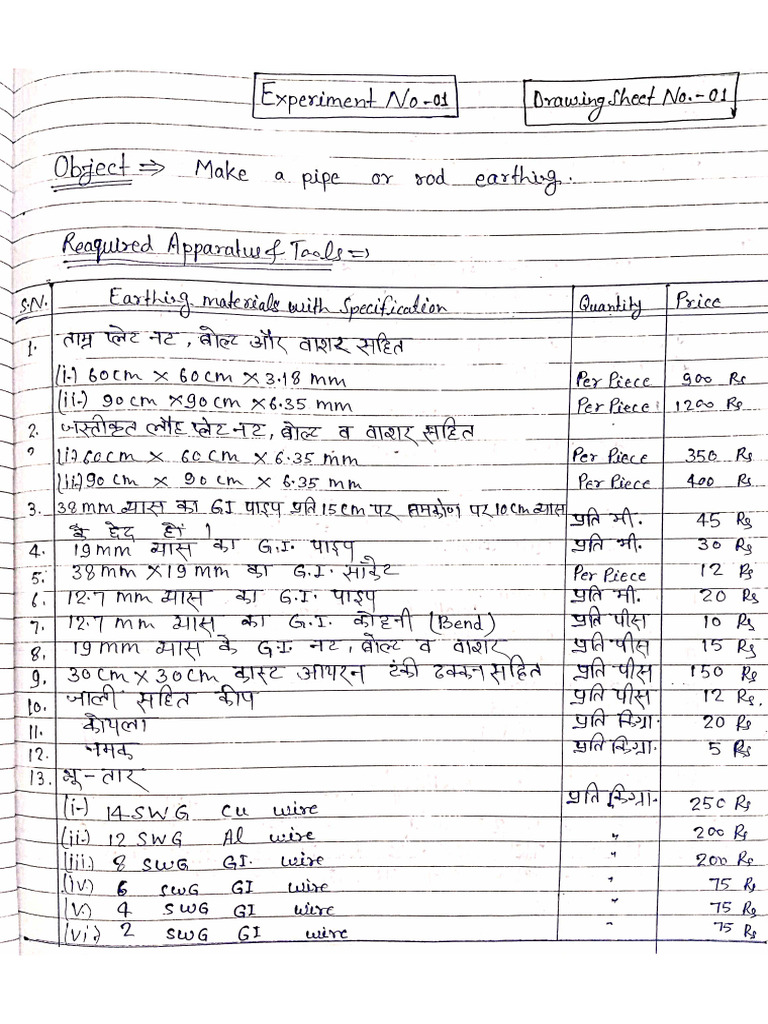 Experiment No.-01
Drawing Sheet No.-01
Object ⇒ Make a pipe or rod earthing.
Reaquired Apparatus & Tools ⇒
S.N. Earthing materials with Specification Quantity Price
1. ताम्र प्लेट नट, बोल्ट और वाशर सहित
(i.) 60cm × 60cm × 3.18 mm Per Piece 900 Rs
(ii.) 90cm × 90cm × 6.35 mm Per Piece 1200 Rs
2. जस्तीकृत लौह प्लेट नट, बोल्ट व वाशर सहित
(i.) 60cm × 60cm × 6.35 mm Per Piece 350 Rs
(ii.) 90cm × 90cm × 6.35 mm Per Piece 400 Rs
3. 38mm व्यास का GI पाइप प्रति 15cm पर समकोण पर 10cm व्यास
के छेद हों। प्रति मी. 45 Rs
4. 19mm व्यास का G.I. पाइप प्रति मी. 30 Rs
5. 38mm × 19mm का G.I. सॉकेट Per Piece 12 Rs
6. 12.7 mm व्यास का G.I. पाइप प्रति मी. 20 Rs
7. 12.7 mm व्यास का G.I. कोहनी (Bend) प्रति पीस 10 Rs
8. 19mm व्यास के G.I. नट, बोल्ट व वाशर प्रति पीस 15 Rs
9. 30cm × 30cm कास्ट आयरन टंकी ढक्कन सहित प्रति पीस 150 Rs
10. जाली सहित कीप प्रति पीस 12 Rs.
11. कोयला प्रति किग्रा. 20 Rs
12. नमक प्रति किग्रा. 5 Rs
13. भू-तार
(i.) 14 SWG Cu wire प्रति किग्रा. 250 Rs
(ii.) 12 SWG Al wire " 200 Rs
(iii.) 8 SWG GI. wire " 200 Rs
(iv.) 6 SWG GI wire " 75 Rs
(v.) 4 SWG GI wire " 75 Rs
(vi.) 2 SWG GI wire " 75 Rs